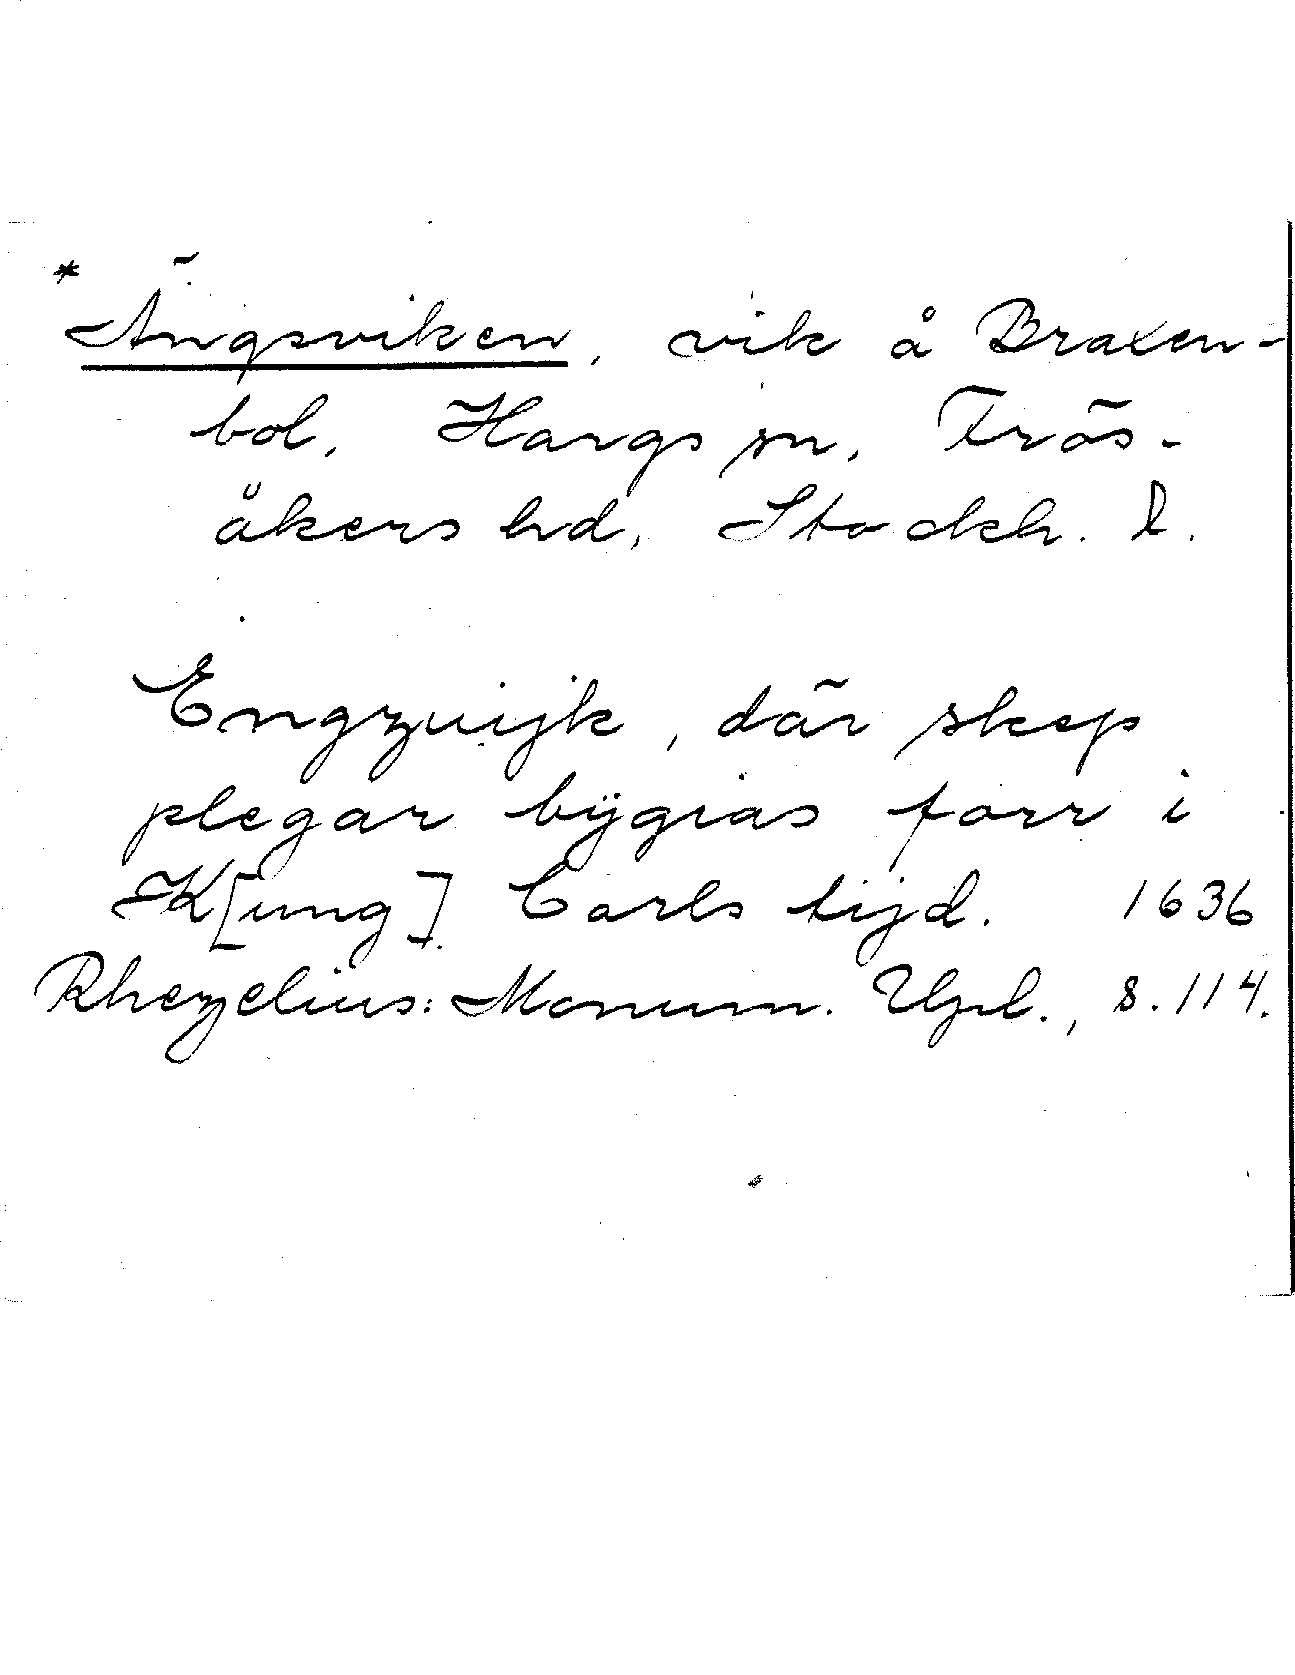 * Ängsviken, vik å Braxen-
bol, Hargs sn, Frös-
åkers hd, Stockh. l.
Engzuijk, där skep
plegar bÿgias forr i
K[ung] Carls tijd. 1636
Rhezelius: Monum. Upl., s. 114.